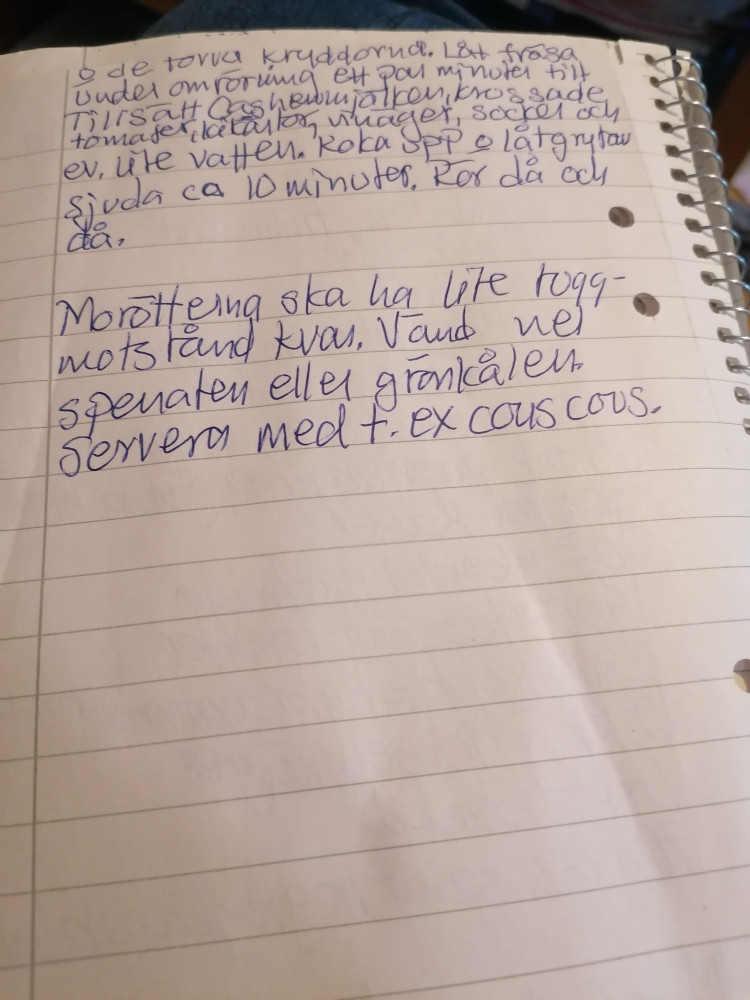 o de torra kryddorna. Låt fräsa
under omrörning ett par minuter till
Tillsätt Cashewmjölken, krossade
tomater, kikärtor, vinäger, socker och
ev. lite vatten. Koka upp o låt grytan
sjuda ca 10 minuter. Rör då och
då.
Morötterna ska ha lite tugg-
motstånd kvar. Vänd ner
spenaten eller grönkålen.
Servera med t.ex couscous.